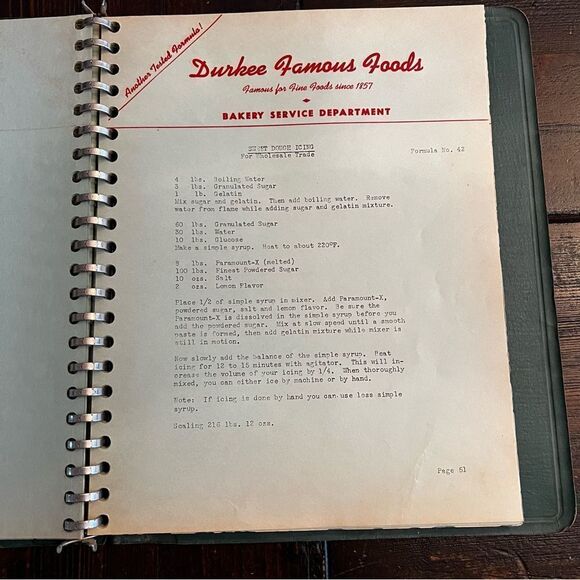 Another Tested Formula!
Durkee Famous Foods
Famous for Fine Foods since 1857
BAKERY SERVICE DEPARTMENT
SWEET DOUGH ICING
For Wholesale Trade
Formula No. 42
4 lbs. Boiling Water
3 lbs. Granulated Sugar
1 lb. Gelatin
Mix sugar and gelatin. Then add boiling water. Remove
water from flame while adding sugar and gelatin mixture.
60 lbs. Granulated Sugar
30 lbs. Water
10 lbs. Glucose
Make a simple syrup. Heat to about 220°F.
8 lbs. Paramount-X (melted)
100 lbs. Finest Powdered Sugar
10 ozs. Salt
2 ozs. Lemon Flavor
Place 1/2 of simple syrup in mixer. Add Paramount-X,
powdered sugar, salt and lemon flavor. Be sure the
Paramount-X is dissolved in the simple syrup before you
add the powdered sugar. Mix at slow speed until a smooth
paste is formed, then add gelatin mixture while mixer is
still in motion.
Now slowly add the balance of the simple syrup. Beat
icing for 12 to 15 minutes with agitator. This will in-
crease the volume of your icing by 1/4. When thoroughly
mixed, you can either ice by machine or by hand.
Note: If icing is done by hand you can use less simple
syrup.
Scaling 216 lbs. 12 ozs.
Page 51